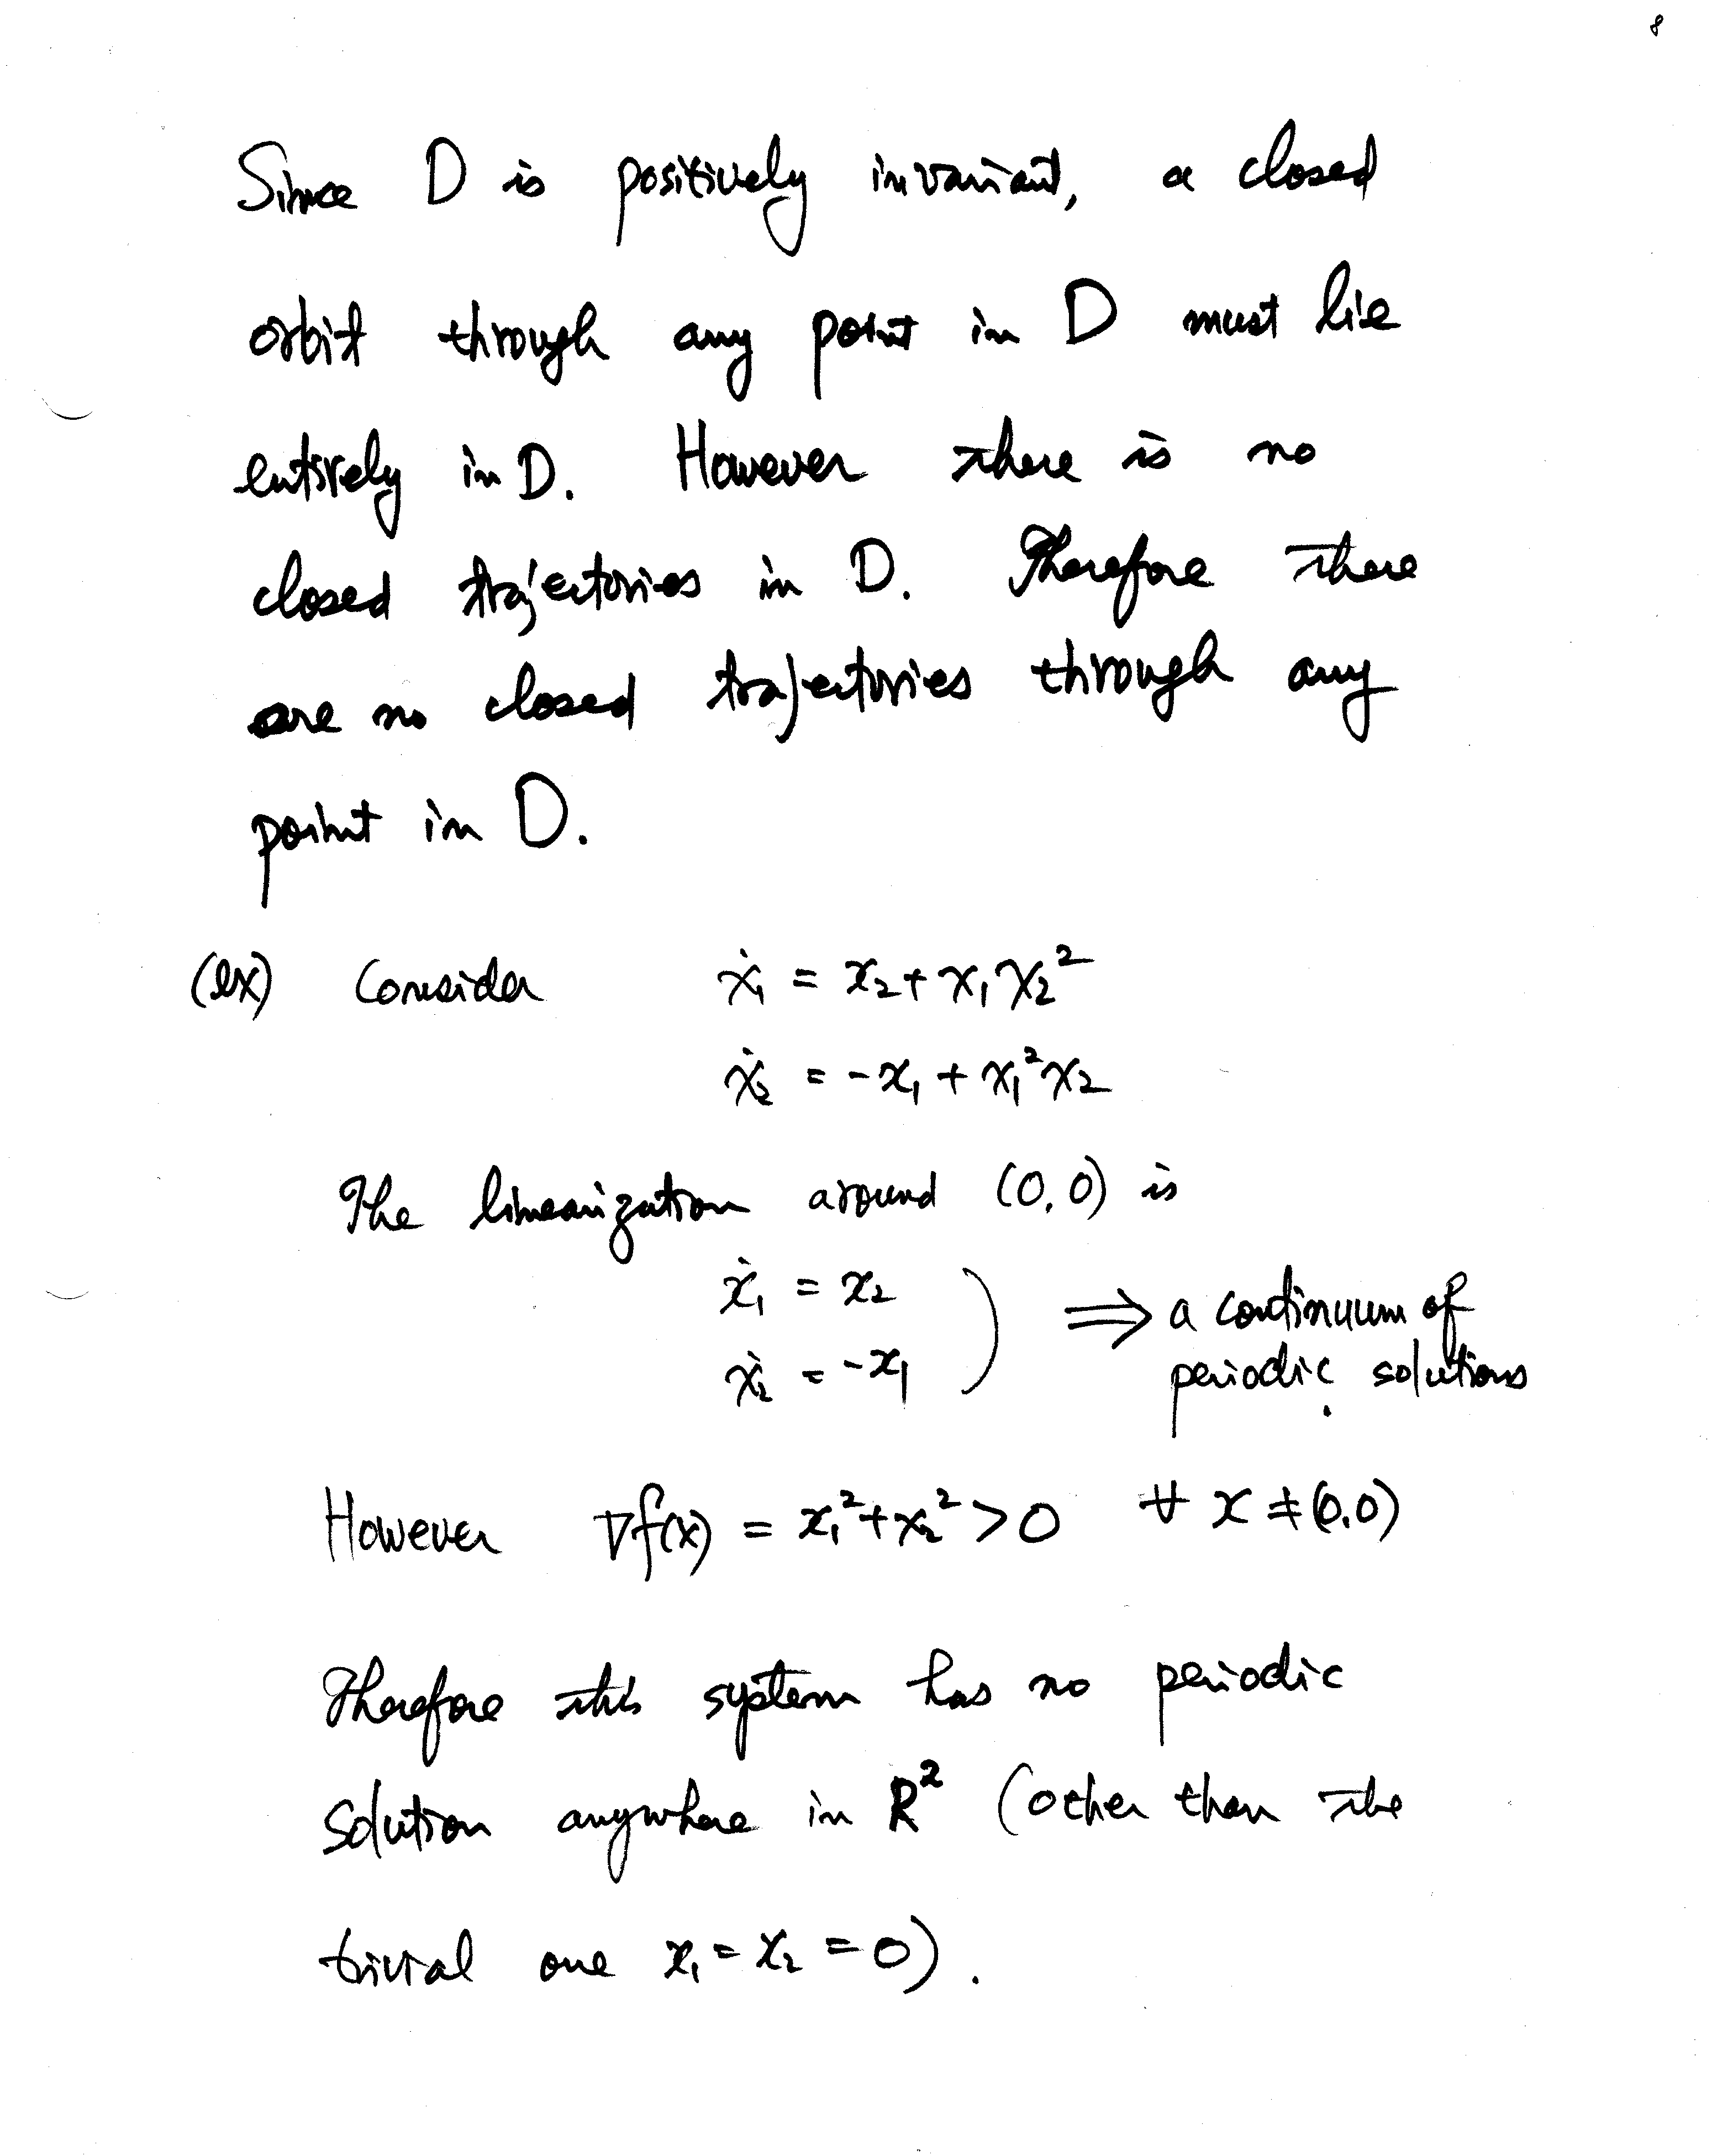 8
Since D is positively invariant, a closed
orbit through any point in D must lie
entirely in D. However there is no
closed trajectories in D. Therefore there
are no closed trajectories through any
point in D.
(ex) Consider ẋ₁ = x₂ + x₁x₂²
ẋ₂ = -x₁ + x₁²x₂
The linearization around (0,0) is
ẋ₁ = x₂
ẋ₂ = -x₁ ) ⇒ a continuum of
periodic solutions.
However ∇f(x) = x₁² + x₂² > 0 ∀ x ≠ (0,0)
Therefore this system has no periodic
solution anywhere in R² (other than the
trivial one x₁ = x₂ = 0).